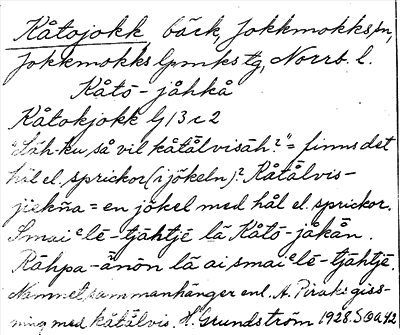 Kåtojokk bäck, Jokkmokks sn,
Jokkmokks lpmks tg, Norrb. l.
Kåtō-jåhkå
Kåtokjokk G 13 c 2
"Läh-ku så vil kåtålvisäh?" = finns det
hål el. sprickor (i jökeln)? Kåtålvis-
jiekŋa = en jökel med hål el. sprickor.
Smai'lē-tjähtjē lä Kåtō-jåkån
Rähpa-änōn lä ai smai'lē-tjähtjē.
Namnet sammanhänger enl. A. Piraks giss-
ning med kåtålvis. H. Grundström 1928.